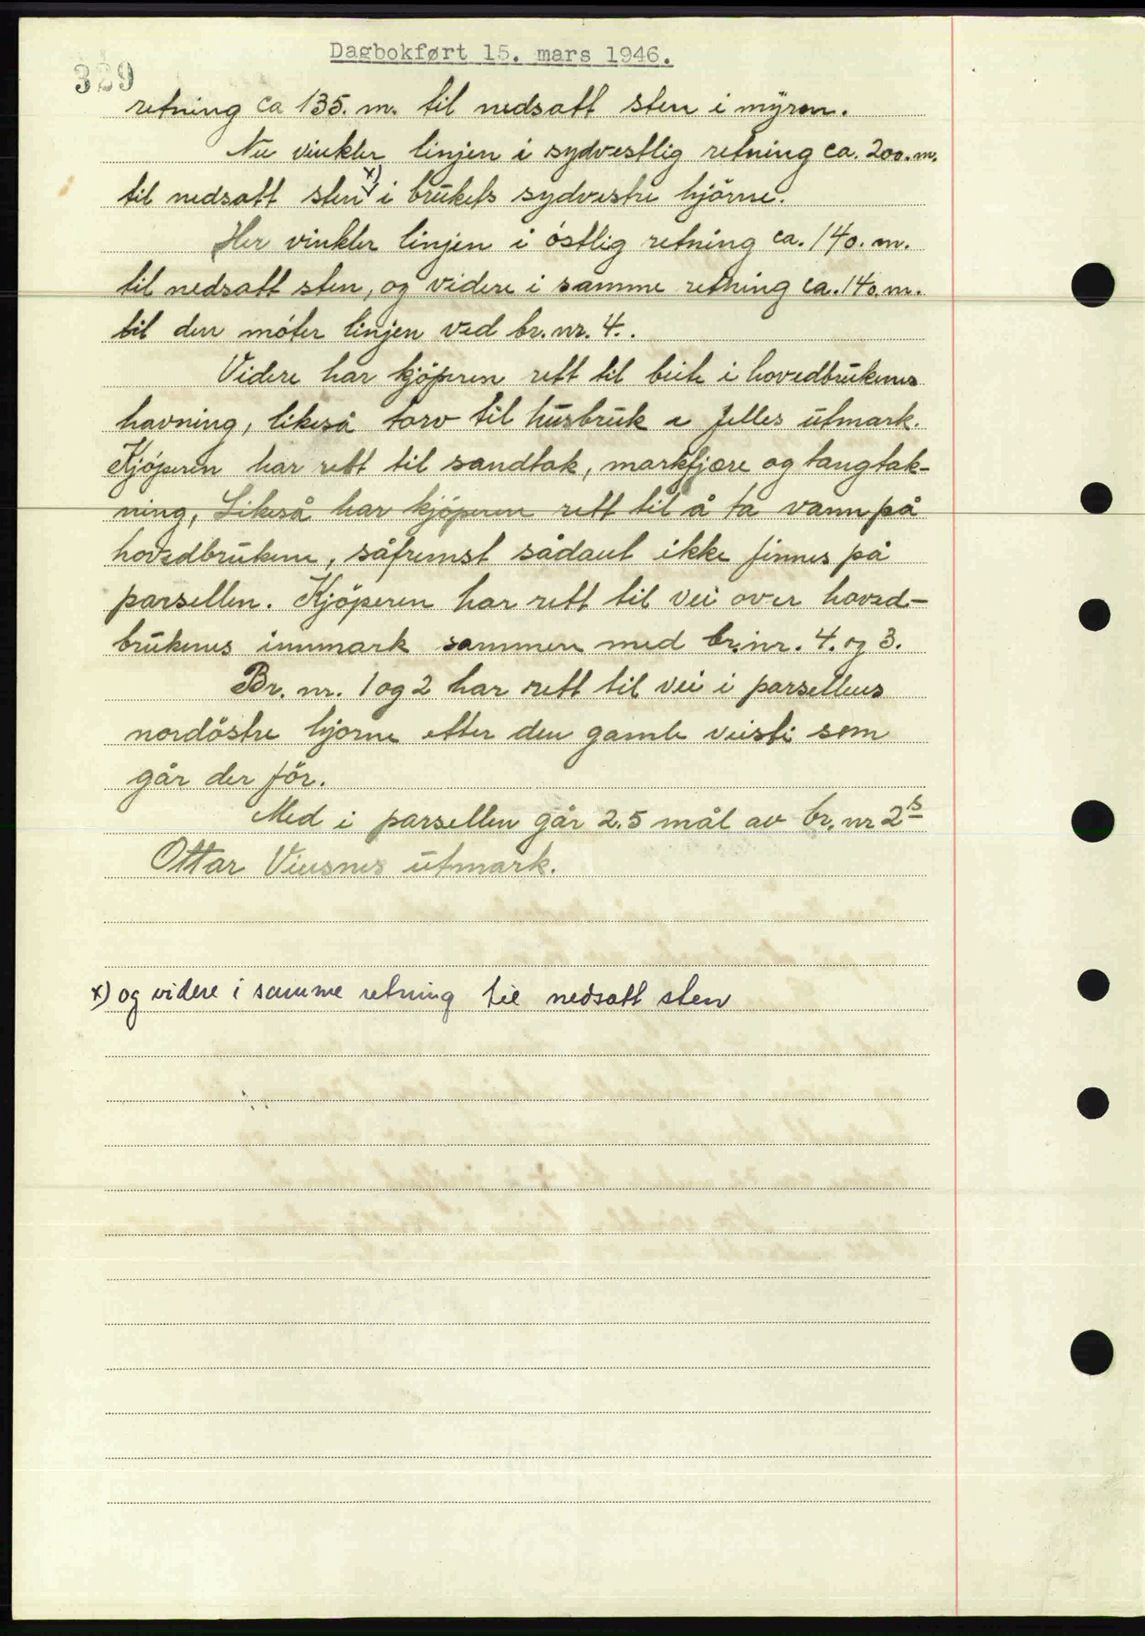 Dagbokført 15. mars 1946.
329
retning ca 135. m. til nedsatt sten i myren.
Nu vinkler linjen i sydvestlig retning ca. 200. m.
til nedsatt sten x) i brukets sydvestre hjörne.
Her vinkler linjen i östlig retning ca. 140. m.
til nedsatt sten, og videre i samme retning ca. 140. m.
til den möter linjen ved br. nr. 4.
Videre har kjöperen rett til beite i hovedbrukenes
havning, likeså torv til husbruk i felles utmark.
Kjöperen har rett til sandtak, markfjære og tangtak-
ning, Likeså har kjöperen rett til å ta vann på
hovedbrukene, såfremst sådant ikke finnes på
parsellen. Kjöperen har rett til vei over hoved-
brukenes innmark sammen med br. nr. 4. og 3.
Br. nr. 1 og 2 har rett til vei i parsellens
nordöstre hjorne etter den gamle veisti som
går der för.
Med i parsellen går 2.5 mål av br. nr 2s
Ottar utmark.
x) og videre i samme retning til nedsatt sten